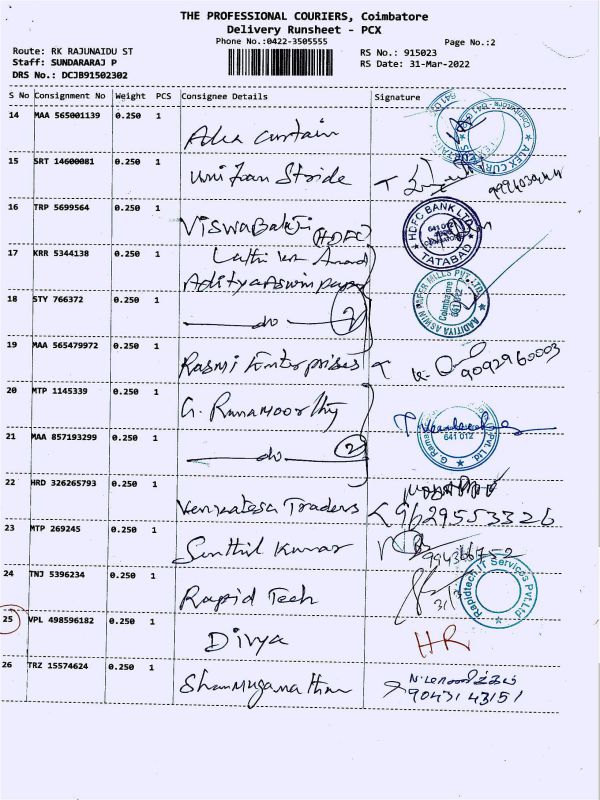 THE PROFESSIONAL COURIERS, Coimbatore
Delivery Runsheet - PCX
Phone No.:0422-3505555
Page No.:2
Route: RK RAJUNAIDU ST
RS No.: 915023
Staff: SUNDARARAJ P
RS Date: 31-Mar-2022
DRS No.: DCJB91502302
S No Consignment No Weight PCS Consignee Details Signature
14 MAA 565001139 0.250 1
Alex Curtain
15 SRT 14600081 0.250 1
Unifoan Stride
16 TRP 5699564 0.250 1
ViswaBalaji (HDFC)
HDFC BANK LTD
641 012
TATABAD
17 KRR 5344138 0.250 1
Aditya Aswin Paper
18 STY 766372 0.250 1
do 2
AADITYA ASWIN PAPER MILLS PVT. LTD
Coimbatore
641 012
19 MAA 565479972 0.250 1
Rasmi Enterprises
9092960003
20 MTP 1145339 0.250 1
G. Ramamoorthy
21 MAA 857193299 0.250 1
do 2
641 012
Pvt. Ltd
22 HRD 326265793 0.250 1
Venkatesa Traders
9629553326
23 MTP 269245 0.250 1
Senthil Kumar
9943666752
24 TNJ 5396234 0.250 1
Rapid Tech
31/3
Rapidtech IT Services Pvt.Ltd
25 VPL 498596182 0.250 1
Divya
HR
26 TRZ 15574624 0.250 1
Shanmuganathan
9043143151